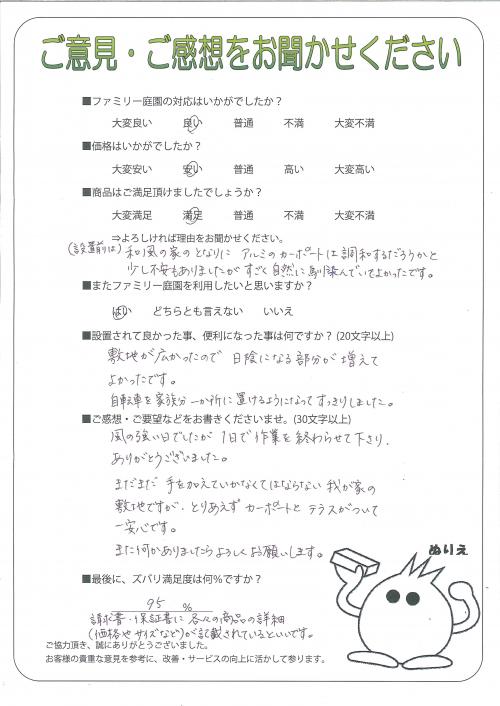 ご意見・ご感想をお聞かせください
■ファミリー庭園の対応はいかがでしたか？
大変良い 良い 普通 不満 大変不満
■価格はいかがでしたか？
大変安い 安い 普通 高い 大変高い
■商品はご満足頂けましたでしょうか？
大変満足 満足 普通 不満 大変不満
⇒よろしければ理由をお聞かせください。
(設置前は) 和風の家のとなりに アルミのカーポートは調和するだろうかと
少し不安もありましたが すごく自然に馴染んでいてよかったです。
■またファミリー庭園を利用したいと思いますか？
はい どちらとも言えない いいえ
■設置されて良かった事、便利になった事は何ですか？(20文字以上)
敷地が広かったので 日陰になる部分が増えて
よかったです。
自転車を家族分一か所に置けるようになってすっきりしました。
■ご感想・ご要望などをお書きくださいませ。(30文字以上)
風の強い日でしたが 1日で作業を終わらせて下さり、
ありがとうございました。
まだまだ 手を加えていかなくてはならない 我が家の
敷地ですが、とりあえず カーポートと テラスがついて
一安心です。
また何かありましたらよろしくお願いします。
ぬりえ
■最後に、ズバリ満足度は何％ですか？
95 %
請求書・保証書に各々の商品の詳細
(価格やサイズなど)が記載されているといいです。
ご協力頂き、誠にありがとうございました。
お客様の貴重な意見を参考に、改善・サービスの向上に活かして参ります。